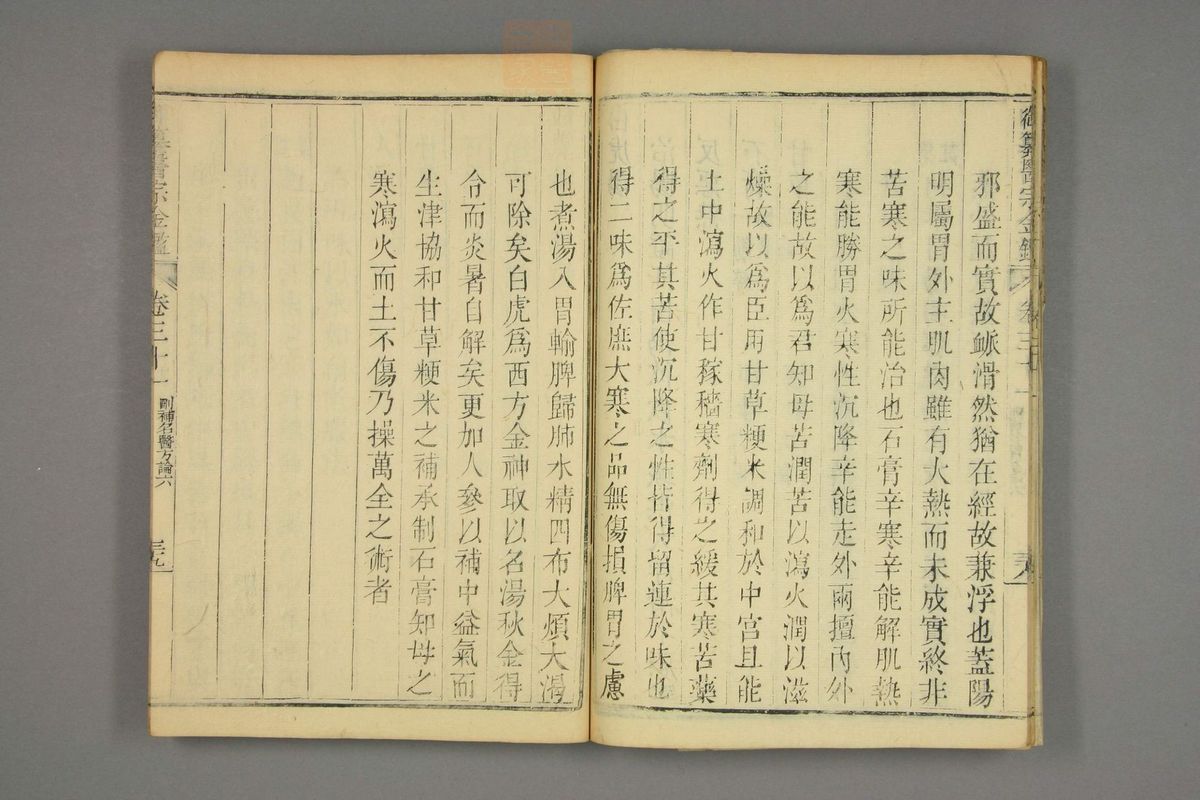 御纂醫宗金鑑 卷三十一 三八
邪盛而實故脈滑然猶在經故兼浮也蓋陽
明屬胃外主肌肉雖有大熱而未成實終非
苦寒之味所能治也石膏辛寒辛能解肌熱
寒能勝胃火寒性沉降辛能走外兩擅內外
之能故以為君知母苦潤苦以瀉火潤以滋
燥故以為臣用甘草粳米調和於中宮且能
土中瀉火作甘稼穡寒劑得之緩其寒苦藥
得之平其苦使沉降之性皆得留連於味也
得二味為佐庶大寒之品無傷損脾胃之慮
也煮湯入胃輸脾歸肺水精四布大煩大渴
可除矣白虎為西方金神取以名湯秋金得
令而炎暑自解矣更加人參以補中益氣而
生津協和甘草粳米之補承制石膏知母之
寒瀉火而土不傷乃操萬全之術者
御纂醫宗金鑑 卷三十一 刪補名醫方論六 三九